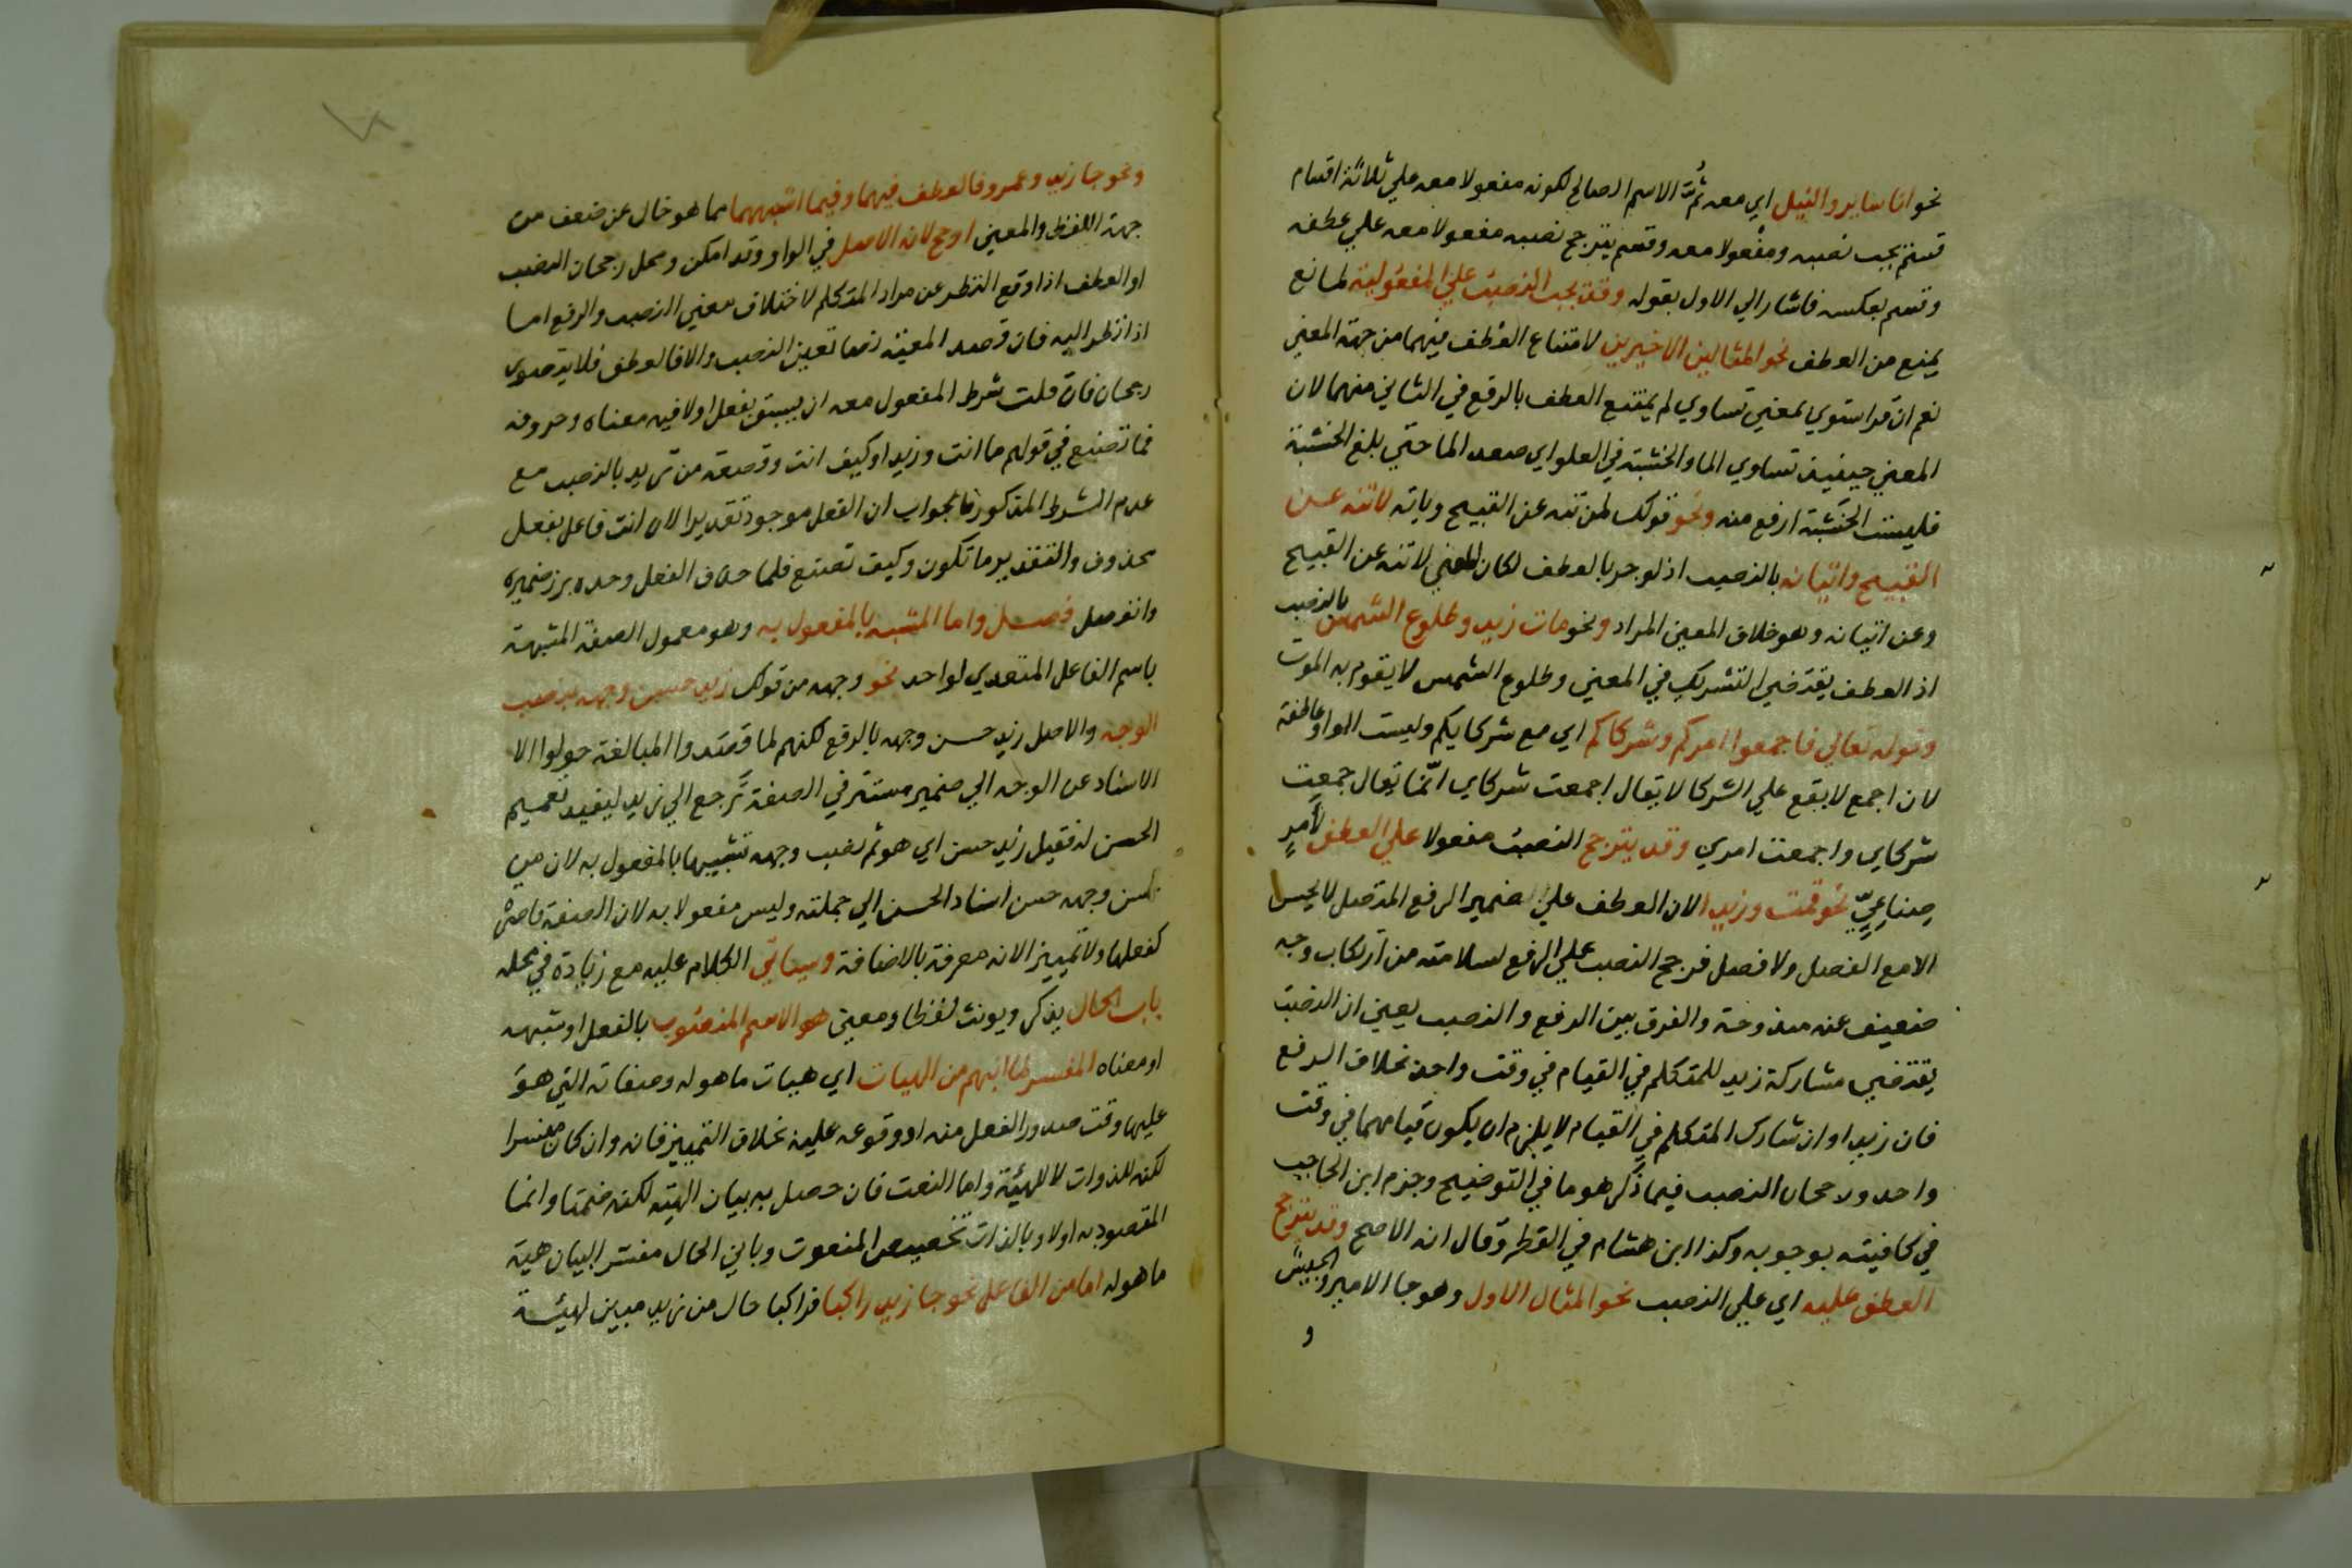 نحو انا ساير والنيل اي معه ثُمَّ الاسم الصالح لكونه مفعولا معه علي ثلاثة اقسام
قسم يجب نصبه ومفعولا معه وقسم يترجح نصبه مفعولا معه علي عطفه
وقسم بعكسه فاشار الي الاول بقوله وقد يجب النصب علي المفعولية لمانع
يمنع من العطف نحو المثالين الاخيرين لامتناع العطف فيهما من جهة المعني
نعم ان قدر استوي بمعني تساوي لم يمتنع العطف بالرفع في الثاني منهما لان
المعني حينيذ تساوي الما والخشبة في العلو اي صعد الما حتي بلغ الخشبة
فليست الخشبة ارفع منه ونحو قولك لمن تنه عن القبيح وياته لا تنه عن
القبيح واتيانه بالنصب اذ لو جر بالعطف لكان المعني لا تنه عن القبيح
وعن اتيانه وهو خلاف المعني المراد ونحو مات زيد وطلوع الشمس بالنصب
اذ العطف يقتضي التشريك في المعني وطلوع الشمس لا يقوم به الموت
وقوله تعالي فاجمعوا امركم وشركاكم اي مع شركايكم وليست الواو عاطفة
لان اجمع لا يقع علي الشركا لا يقال اجمعت شركاي انّما يقال جمعت
شركاي واجمعت امري وقد يترجح النصب مفعولا علي العطف لأمرٍ
صِناعِيٍّ نحو قمت وزيدا لان العطف علي ضمير الرفع المتصل لا يحسن
الا مع الفصل ولا فصل فرجح النصب علي الرفع لسلامته من ارتكاب وجه
ضعيف عنه مندوحة والفرق بين الرفع والنصب يعني ان النصب
يقتضي مشاركة زيد للمتكلم في القيام في وقت واحد بخلاف الرفع
فان زيدا وان شارك المتكلم في القيام لا يلزم ان يكون قيامهما في وقت
واحد ورجحان النصب فيما ذكر هو ما في التوضيح وجزم ابن الحاجب
في كافيته بوجوبه وكذا ابن هشام في القطر وقال انه الاصح وقد يترجح
العطف عليه اي علي النصب نحو المثال الاول وهو جا الامير والجيش
و
ونحو جا زيد وعمرو فالعطف فيهما وفيما اشبههما مما هو خال عن ضعف من
جهة اللفظ والمعني ارجح لانه الاصل في الواو وقد امكن ومحل رجحان النصب
او العطف اذا وقع النظر عن مراد المتكلم لاختلاف معني النصب والرفع اما
اذا نظر اليه فان قصد المعية نصا تعين النصب والا فالعطف فلا يتصور
رجحان فان قلت شرط المفعول معه ان يسبق بفعل او لا فيه معناه وحروفه
فما تصنع في قولهم ما انت وزيدا وكيف انت وقصعة من ثريد بالنصب مع
عدم الشرط المذكور فالجواب ان الفعل موجود تقديرا لان انت فاعل بفعل
محذوف والتقدير ما تكون وكيف تصنع فلما حذف الفعل وحده برز ضميره
وانفصل فصل واما المشبه بالمفعول به وهو معمول الصفة المشبهة
باسم الفاعل المتعدي لواحد نحو وجهه من قولك زيد حسن وجهه بنصب
الوجه والاصل زيد حسن وجهه بالرفع لكنهم لما قصدوا المبالغة حولوا الا
الاسناد عن الوجه الي ضمير مستتر في الصفة يرجع الي زيد ليفيد تعميم
الحسن له فقيل زيد حسن اي هو ثم نصب وجهه تشبيها بالمفعول به لان من
حسن وجهه حسن اسناد الحسن الي جملته وليس مفعولا به لان الصفة قاصرة
كفعلها ولا تمييز الانه معرفة بالاضافة وسياتي الكلام عليه مع زيادة في محله
باب الحال يذكر ويونث لفظا ومعني هو الاسم المنصوب بالفعل او شبهه
او معناه المفسر لما انبهم من الهيات اي هيات ما هو له وصفاته التي هو
عليها وقت صدور الفعل منه او وقوعه عليه بخلاف التمييز فانه وان كان مفسرا
لكنه للذوات لا للهيئة واما النعت فان حصل به بيان الهيئة لكنه ضمنا وانما
المقصود به اولا وبالذات تخصيص المنعوت وياتي الحال مفسرا لبيان هية
ما هو له اما من الفاعل نحو جا زيد راكبا فراكبا حال من زيد مبين لهيئة